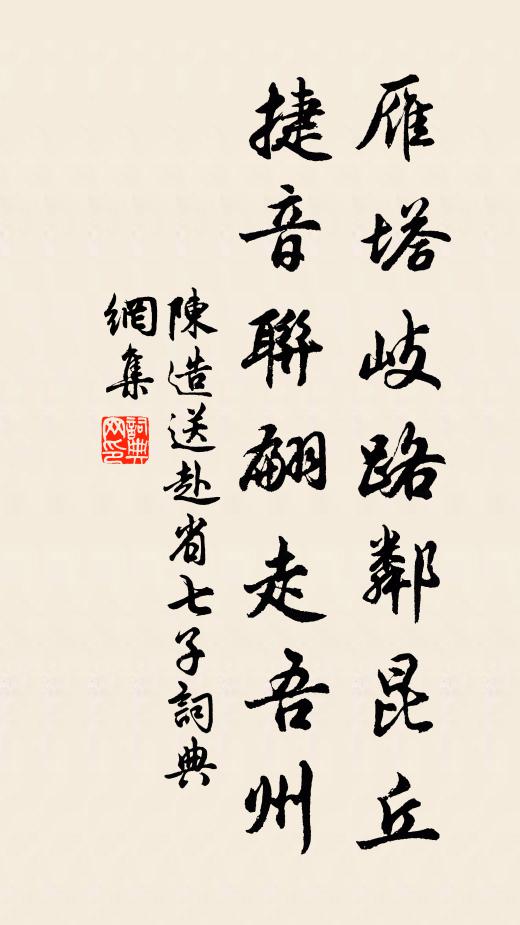 雁塔岐路鄰昆丘
捷音聯翩走吾州
陳造送赴省七子詞典
網集
詞典
网印